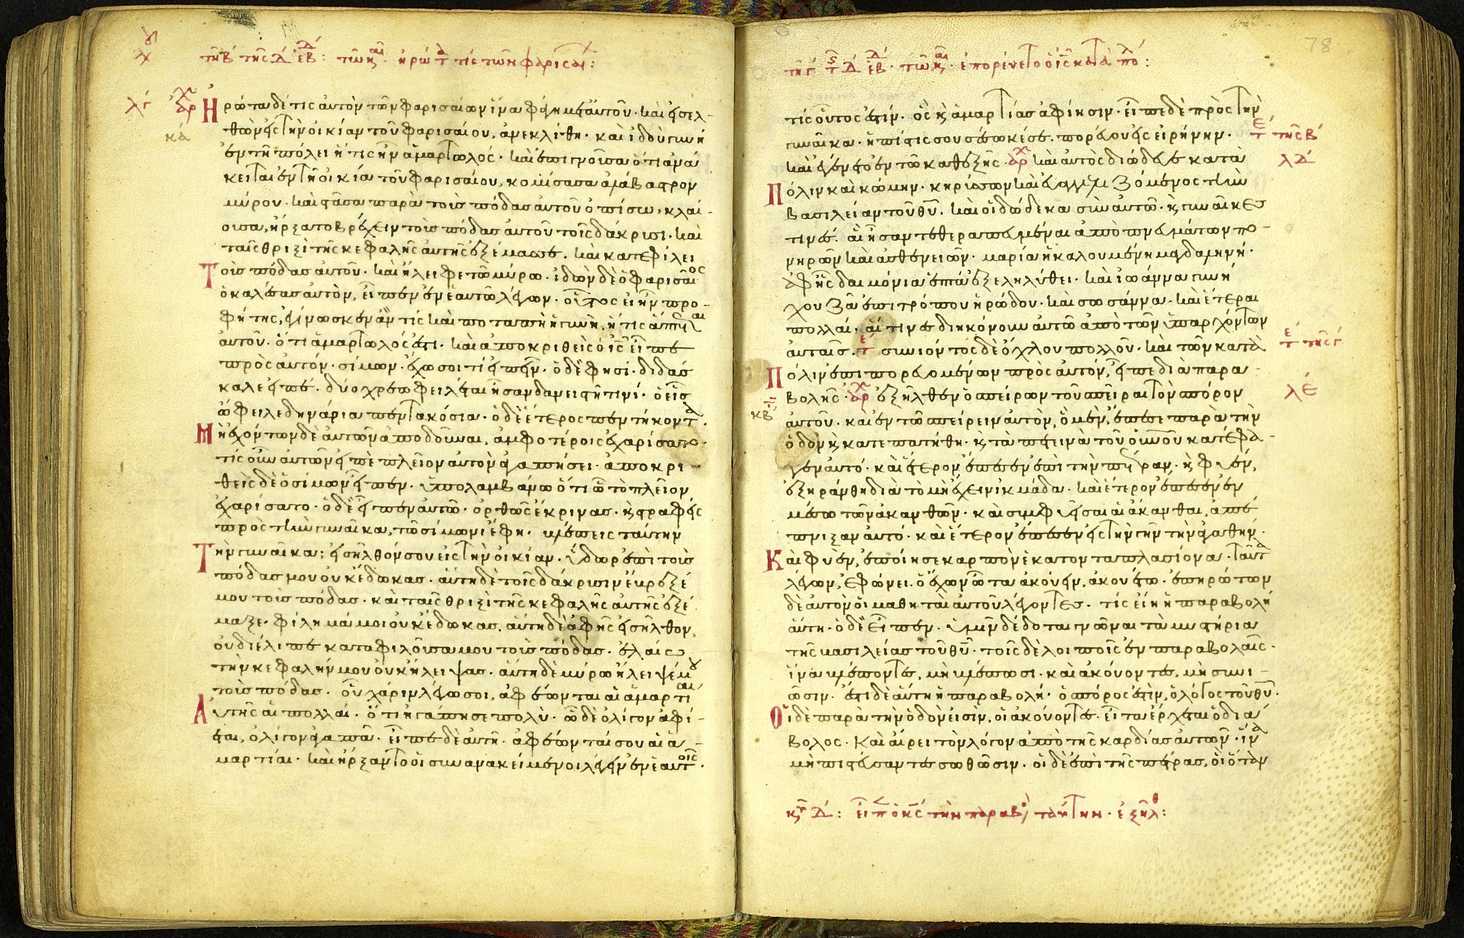 λγ
ἀρχ
Ἠρώτα δέ τις αὐτὸν τῶν φαρισαίων ἵνα φάγη μετ αὐτοῦ· καὶ εἰσελ-
θὼν εἰς τὴν οἰκίαν τοῦ φαρισαίου, ἀνεκλίθη· καὶ ἰδοὺ γυνὴ
ἐν τῆ πόλει ἥτις ἦν ἁμαρτωλός· καὶ ἐπιγνοῦσα ὅτι ἀνά
κειται ἐν τῆ οἰκία τοῦ φαρισαίου, κομίσασα ἀλάβαστρον
μύρου· καὶ στᾶσα παρὰ τοὺς πόδας αὐτοῦ ὀπίσω, κλαί-
ουσα, ἤρξατο βρέχειν τοὺς πόδας αὐτοῦ τοῖς δάκρυσι· καὶ
ταῖς θριξὶ τῆς κεφαλῆς αὐτῆς ἐξέμασσε· καὶ κατεφίλει
Τοὺς πόδας αὐτοῦ· καὶ ἤλειφε τῶ μύρω· ἰδὼν δὲ ὁ φαρισαῖος
ὁ καλέσας αὐτὸν, εἶπεν ἐν ἑαυτῶ λέγων· οὗτος εἰ ἦν προ-
φήτης, ἐγίνωσκεν ἂν τίς καὶ ποταπὴ ἡ γυνὴ, ἥτις ἅπτεται
αὐτοῦ· ὅτι ἁμαρτωλός ἐστι· καὶ ἀποκριθεὶς ὁ ις εἶπε
πρὸς αὐτόν· σίμων· ἔχω σοι τί εἰπεῖν· ὁ δέ φησι· διδάσ
καλε εἰπέ· δύο χρεωφειλέται ἦσαν δανειστῆ τινί· ὁ εἷς
ὤφειλε δηνάρια πεντακόσια· ὁ δὲ ἕτερος πεντήκοντα·
Μὴ ἐχόντων δὲ αὐτῶν ἀποδοῦναι, ἀμφοτέροις ἐχαρίσατο·
τίς οὖν αὐτῶν εἰπὲ πλεῖον αὐτὸν ἀγαπήσει· ἀποκρι
θεὶς δὲ ὁ σίμων εἶπεν· ὑπολαμβάνω ὅτι ὧ τὸ πλεῖον
ἐχαρίσατο· ὁ δὲ εἶπεν αὐτῶ· ὀρθῶς ἔκρινας· κ στραφεὶς
πρὸς τὴν γυναῖκα, τῶ σίμωνι ἔφη· βλέπεις ταύτην
Τὴν γυναῖκα; εἰσῆλθόν σου εἰς τὴν οἰκίαν· ὕδωρ ἐπὶ τοὺς
πόδας μου οὐκ ἔδωκας· αὕτη δὲ τοῖς δάκρυσιν ἔβρεξέ
μου τοὺς πόδας· καὶ ταῖς θριξὶ τῆς κεφαλῆς αὐτῆς ἐξέ
μαξε· φίλημά μοι οὐκ ἔδωκας· αὕτη δὲ ἀφ ἧς εἰσῆλθον,
οὐ διέλιπε καταφιλοῦσά μου τοὺς πόδας· ἐλαίω
τὴν κεφαλήν μου οὐκ ἤλειψας· αὕτη δὲ μύρω ἤλειψέ μου
τοὺς πόδας· οὗ χάριν λέγω σοι, ἀφέωνται αἱ ἁμαρτίαι
Αὐτῆς αἱ πολλαί· ὅτι ἠγάπησε πολύ· ὧ δὲ ὀλίγον ἀφί-
εται, ὀλίγον ἀγαπᾶ· εἶπε δὲ αὐτῆ· ἀφέωνταί σου αἱ ἁ-
μαρτίαι· καὶ ἤρξαντο οἱ συνανακείμενοι λέγειν ἐν ἑαυτοῖς·
78
τίς οὗτος ἐστιν· ὃς κ ἁμαρτίας ἀφίησιν· εἶπε δὲ πρὸς τὴν
γυναῖκα· ἡ πίστις σου σέσωκέ σε· πορεύου εἰς εἰρήνην·
καὶ ἐγένετο ἐν τῶ καθεξῆς· ἀρχ καὶ αὐτὸς διώδευε κατὰ
λδ
Πόλιν καὶ κώμην· κηρύσσων καὶ εὐαγγελιζόμενος τὴν
βασιλείαν τοῦ θυ· καὶ οἱ δώδεκα σὺν αὐτῶ· κ γυναῖκες
τινές· αἳ ἦσαν τεθεραπευμέναι ἀπὸ πνευμάτων πο-
νηρῶν καὶ ἀσθενειῶν· μαρία ἡ καλουμένη μαγδαληνή·
ἀφ ἧς δαιμόνια ἑπτὰ ἐξεληλύθει· καὶ ἰωάννα γυνὴ
χουζᾶ ἐπιτρόπου ἡρώδου· καὶ σωσάννα· καὶ ἕτεραι
πολλαί, αἵτινες διηκόνουν αὐτῶ ἀπὸ τῶν ὑπαρχόντων
αὐταῖς· συνιόντος δὲ ὄχλου πολλοῦ· καὶ τῶν κατὰ
Πόλιν ἐπιπορευομένων πρὸς αὐτὸν, εἶπε διὰ παρα-
βολῆς· ἀρχ ἐξῆλθεν ὁ σπείρων τοῦ σπεῖραι τὸν σπόρον
λε
αὐτοῦ· καὶ ἐν τῶ σπείρειν αὐτὸν, ὃ μὲν, ἔπεσε παρὰ τὴν
ὁδὸν κ κατεπατήθη· κ τὰ πετεινὰ τοῦ οὐνοῦ κατέφα-
γεν αὐτό· καὶ ἕτερον ἔπεσεν ἐπὶ τὴν πέτραν· κ φυὲν,
ἐξηράνθη διὰ τὸ μὴ ἔχειν ἰκμάδα· καὶ ἕτερον ἔπεσεν ἐν
μέσω τῶν ἀκανθῶν· καὶ συμφυεῖσαι αἱ ἄκανθαι, ἀπέ
πνιξαν αὐτό· καὶ ἕτερον ἔπεσεν εἰς τὴν γῆν τὴν ἀγαθήν·
Καὶ φυὲν, ἐποίησε καρπὸν ἑκατονταπλασίονα· ταῦτα
λέγων, ἐφώνει· ὁ ἔχων ὦτα ἀκούειν, ἀκουέτω· ἐπηρώτων
δὲ αὐτὸν οἱ μαθηταὶ αὐτοῦ λέγοντες· τίς εἴη ἡ παραβολὴ
αὕτη· ὁ δὲ εἶπεν· ὑμῖν δέδοται γνῶναι τὰ μυστήρια
τῆς βασιλείας τοῦ θυ· τοῖς δὲ λοιποῖς ἐν παραβολαῖς·
ἵνα βλέποντες, μὴ βλέπωσι· καὶ ἀκούοντες, μὴ συνι-
ῶσιν· ἔστι δὲ αὕτη ἡ παραβολή· ὁ σπόρος ἐστὶν, ὁ λόγος τοῦ θυ·
Οἱ δὲ παρὰ τὴν ὁδὸν εἰσὶν, οἱ ἀκούοντες· εἶτα ἔρχεται ὁ διά
βολος· καὶ αἴρει τὸν λόγον ἀπὸ τῆς καρδίας αὐτῶν· ἵνα
μὴ πιστεύσαντες σωθῶσιν· οἱ δὲ ἐπὶ τῆς πέτρας, οἳ ὅταν